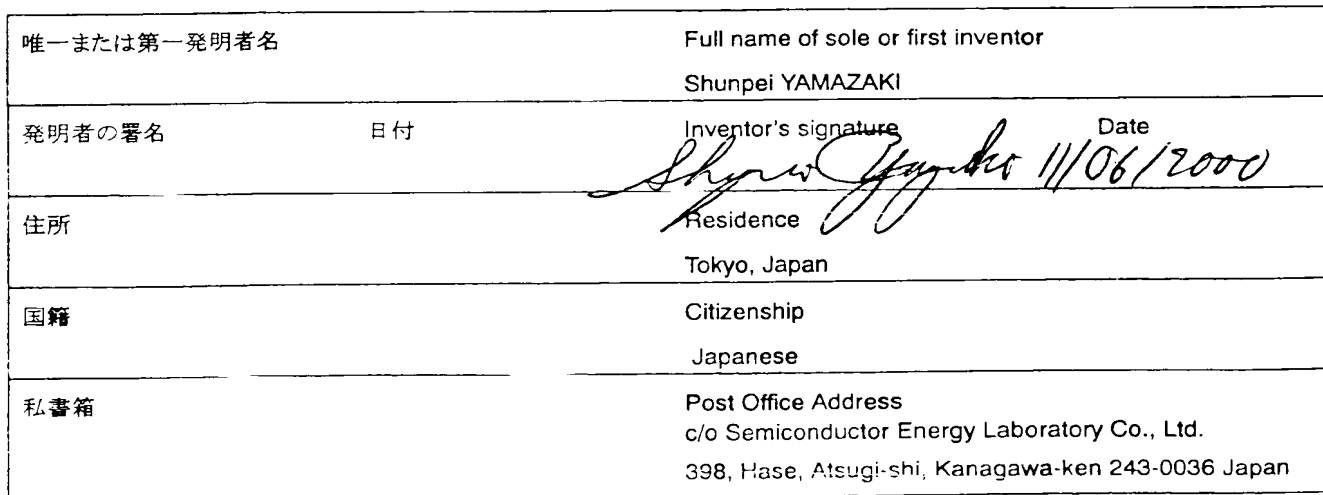 唯一または第一発明者名 Full name of sole or first inventor
Shunpei YAMAZAKI
発明者の署名 日付 Inventor's signature Date
11/06/2000
住所 Residence
Tokyo, Japan
国籍 Citizenship
Japanese
私書箱 Post Office Address
c/o Semiconductor Energy Laboratory Co., Ltd.
398, Hase, Atsugi-shi, Kanagawa-ken 243-0036 Japan